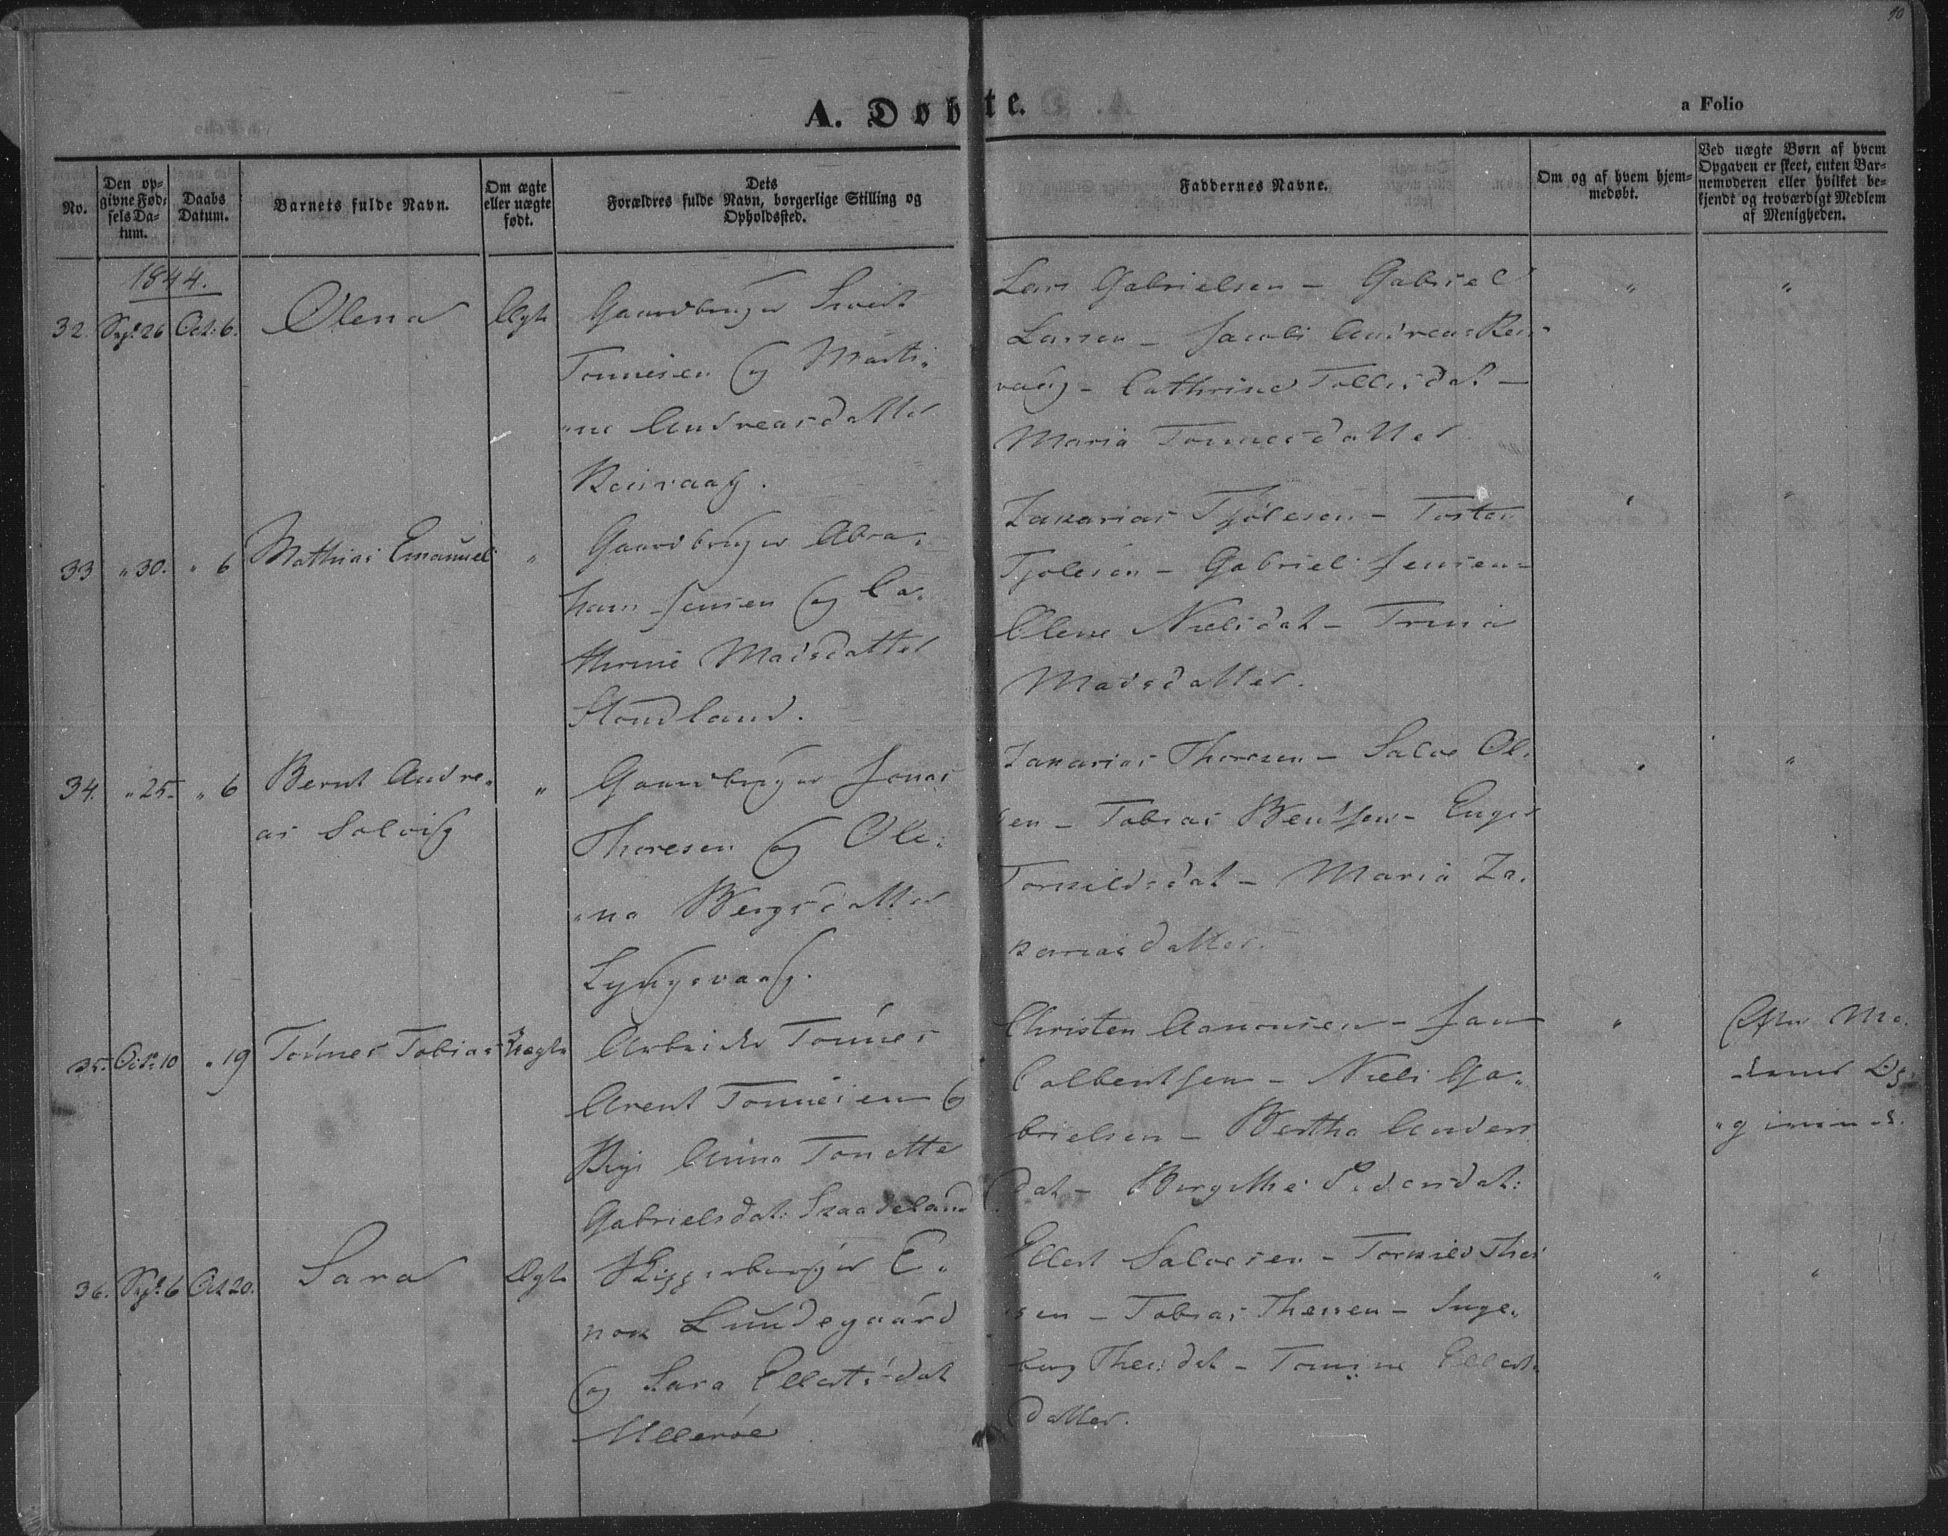 10
A. Døbte.
a Folio
No.
Den op-
givne Fød-
sels Da-
tum.
Daabs
Datum.
Barnets fulde Navn.
Om ægte
eller uægte
født.
Dets
Forældres fulde Navn, borgerlige Stilling og
Opholdssted.
Faddernes Navne.
Om og af hvem hjem-
medøbt.
Ved uægte Børn af hvem
Opgaven er skeet, enten Bar-
nemoderen eller hvilket be-
kjendt og troværdigt Medlem
af Menigheden.
1844.
32. Sept. 26 Oct. 6. Olena Ægte
Gaardbruger
Tønnesen og Marti-
ne Andreasdatter
Reisvaag.
Lars Gabrielsen - Gabriel
Larsen - Jacob Andreas Reis
vaag - Cathrine Tollisdat -
Maria Tønnesdatter
" "
33 " 30. " 6 Mathias Emanuel "
Gaardbruger Abra-
ham Jensen og Ca-
thrine Madsdatter
Stondland.
Zakarias Tjølesen - Tosten
Tjølesen - Gabriel Jensen -
Olene Nielsdat - Trine
Madsdatter.
" "
34. " 25. " 6 Bernt Andre-
as Solvig "
Gaardbruger Jonas
Thoresen og Ole-
na Bergsdatter
Lyngsvaag.
Zakarias Thoresen - Salve Ol-
sen - Tobias Bentsen - Enger
Torkildsdat - Maria Za-
kariasdatter.
" "
35. Oct. 10 " 19 Tønnes Tobias Uægte
Arbeider Tønnes
Arent Tønnesen &
Pige Anna Tonette
Gabrielsdat: Skaadeland
Christen Aanonsen - Jan
Colbentsen - Niels Ga-
brielsen - Bertha Anders
dat - Bergithe Pedersdat:
"
Efter Mo-
derens Op-
givende.
36. Sept. 6 Oct 20. Sara Ægte
Skipperborger E-
nok Lundegaard
og Sara Ellertsdat
Ullerøe
Ellert Salvesen - Torkild Ther
sen - Tobias Thersen - Inge-
borg Thersdat - Tomine Ellert-
datter.
" "